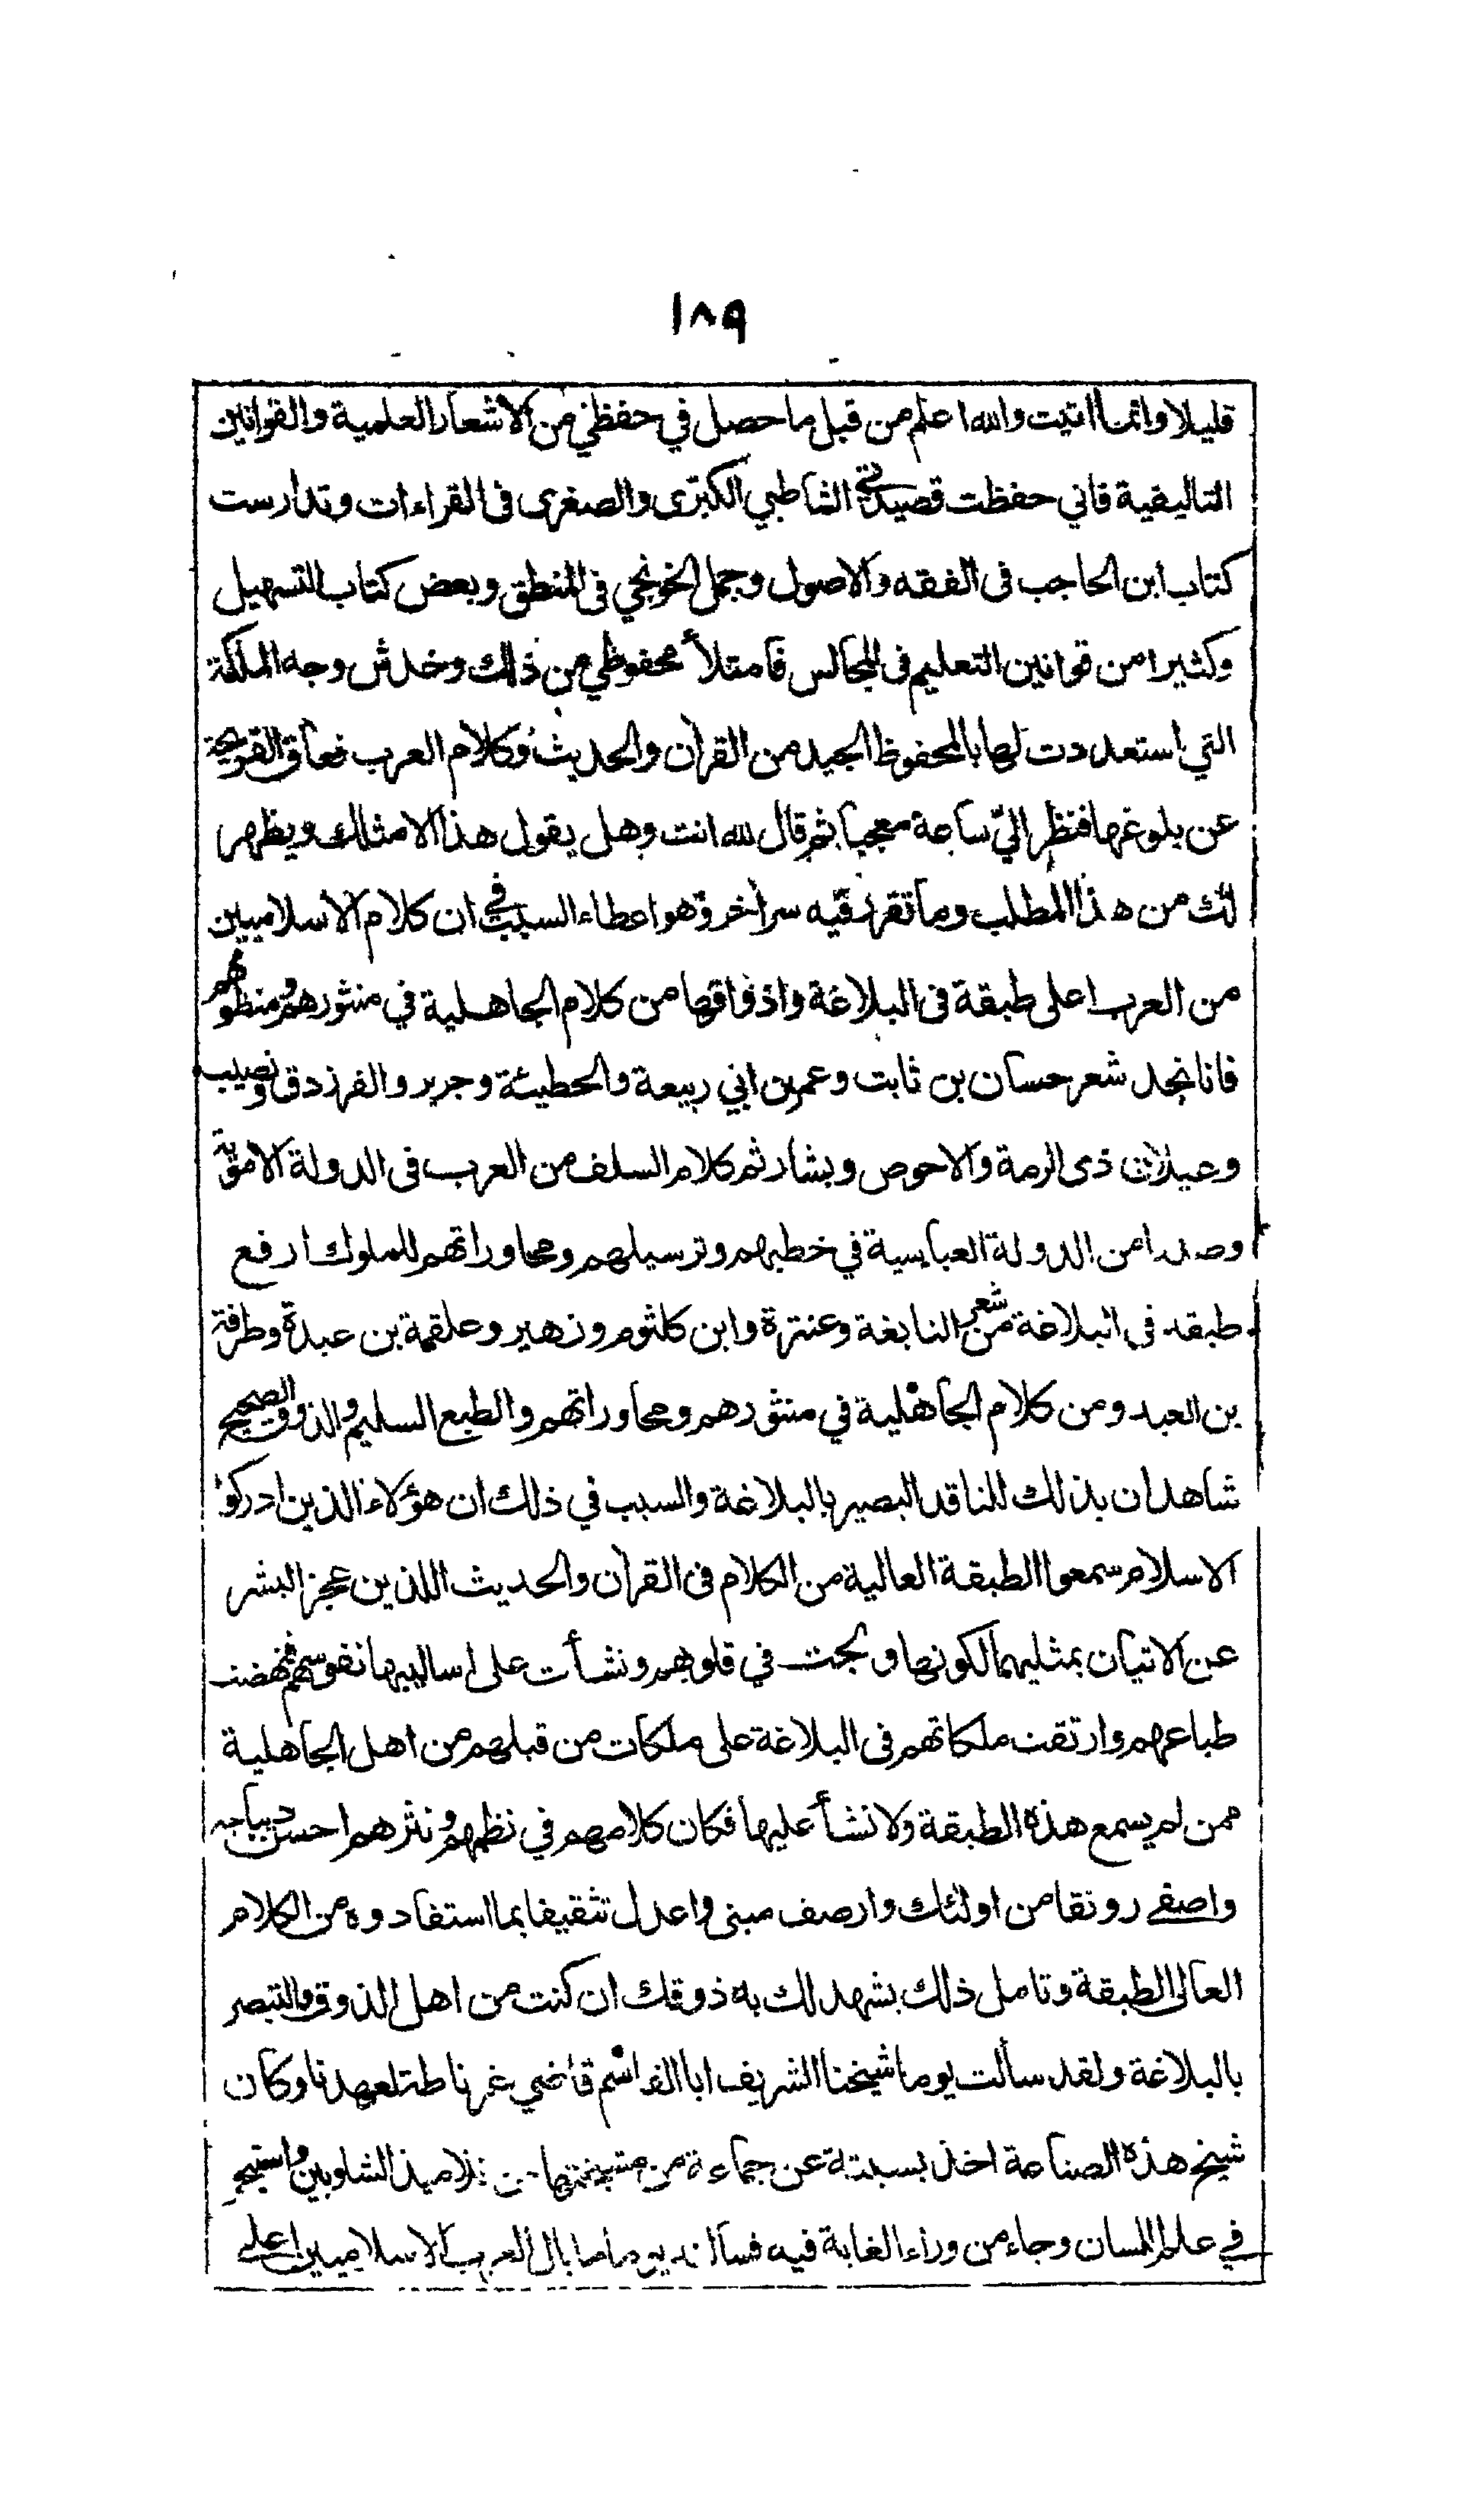 ١٨٩
قليلا وانما اتيت والله اعلم من قبل ما حصل في حفظي من الاشعار العلمية والقوانين
التاليفية فاني حفظت قصيدتي الشاطبي الكبرى والصغرى فى القراءات وتدارست
كتاب ابن الحاجب فى الفقه والاصول وجمل الخونجي فى المنطق وبعض كتاب التسهيل
وكثيرا من قوانين التعليم فى المجالس فامتلأ محفوظي من ذلك وخدش وجه الملكة
التي استعددت لها بالمحفوظ الجيد من القرآن والحديث وكلام العرب فعاق القريحة
عن بلوغها فنظر اليّ ساعة معجبا ثم قال لله انت وهل يقول هذا الا مثلك ويظهر
لك من هذا المطلب وما تقرر فيه سر آخر وهو اعطاء السبب في ان كلام الاسلاميين
من العرب اعلى طبقة فى البلاغة واذواقها من كلام الجاهلية في منثورهم ومنظومهم
فانا نجد شعر حسان بن ثابت وعمر بن ابي ربيعة والحطيئة وجرير والفرزدق ونصيب
وغيلان ذى الرمة والاحوص وبشار ثم كلام السلف من العرب فى الدولة الاموية
وصدرا من الدولة العباسية في خطبهم وترسيلهم ومحاوراتهم للملوك ارفع
طبقة في البلاغة من شعر النابغة وعنترة وابن كلثوم وزهير وعلقمة بن عبدة وطرفة
بن العبد ومن كلام الجاهلية في منثورهم ومحاوراتهم والطبع السليم والذوق الصحيح
شاهدان بذلك للناقد البصير بالبلاغة والسبب في ذلك ان هؤلاء الذين ادركوا
الاسلام سمعوا الطبقة العالية من الكلام فى القرآن والحديث اللذين عجز البشر
عن الاتيان بمثليهما لكونها ولجت في قلوبهم ونشأت على اساليبها نفوسهم فنهضت
طباعهم وارتقت ملكاتهم فى البلاغة على ملكات من قبلهم من اهل الجاهلية
ممن لم يسمع هذه الطبقة ولا نشأ عليها فكان كلامهم في نظمهم ونثرهم احسن ديباجه
واصفى رونقا من اولئك وارصف مبنى واعدل تثقيفا بما استفادوه من الكلام
العالى الطبقة وتامل ذلك يشهد لك به ذوقك ان كنت من اهل الذوق والتبصر
بالبلاغة ولقد سألت يوما شيخنا الشريف ابا القاسم قاضي غرناطة لعهدنا وكان
شيخ هذه الصناعة اخذ بسبتة عن جماعة من مشيختها من تلاميذ الشلوبين واستبحر
في علم اللسان وجاء من وراء الغاية فيه فسألته يوما ما بال العرب الاسلاميين اعلى